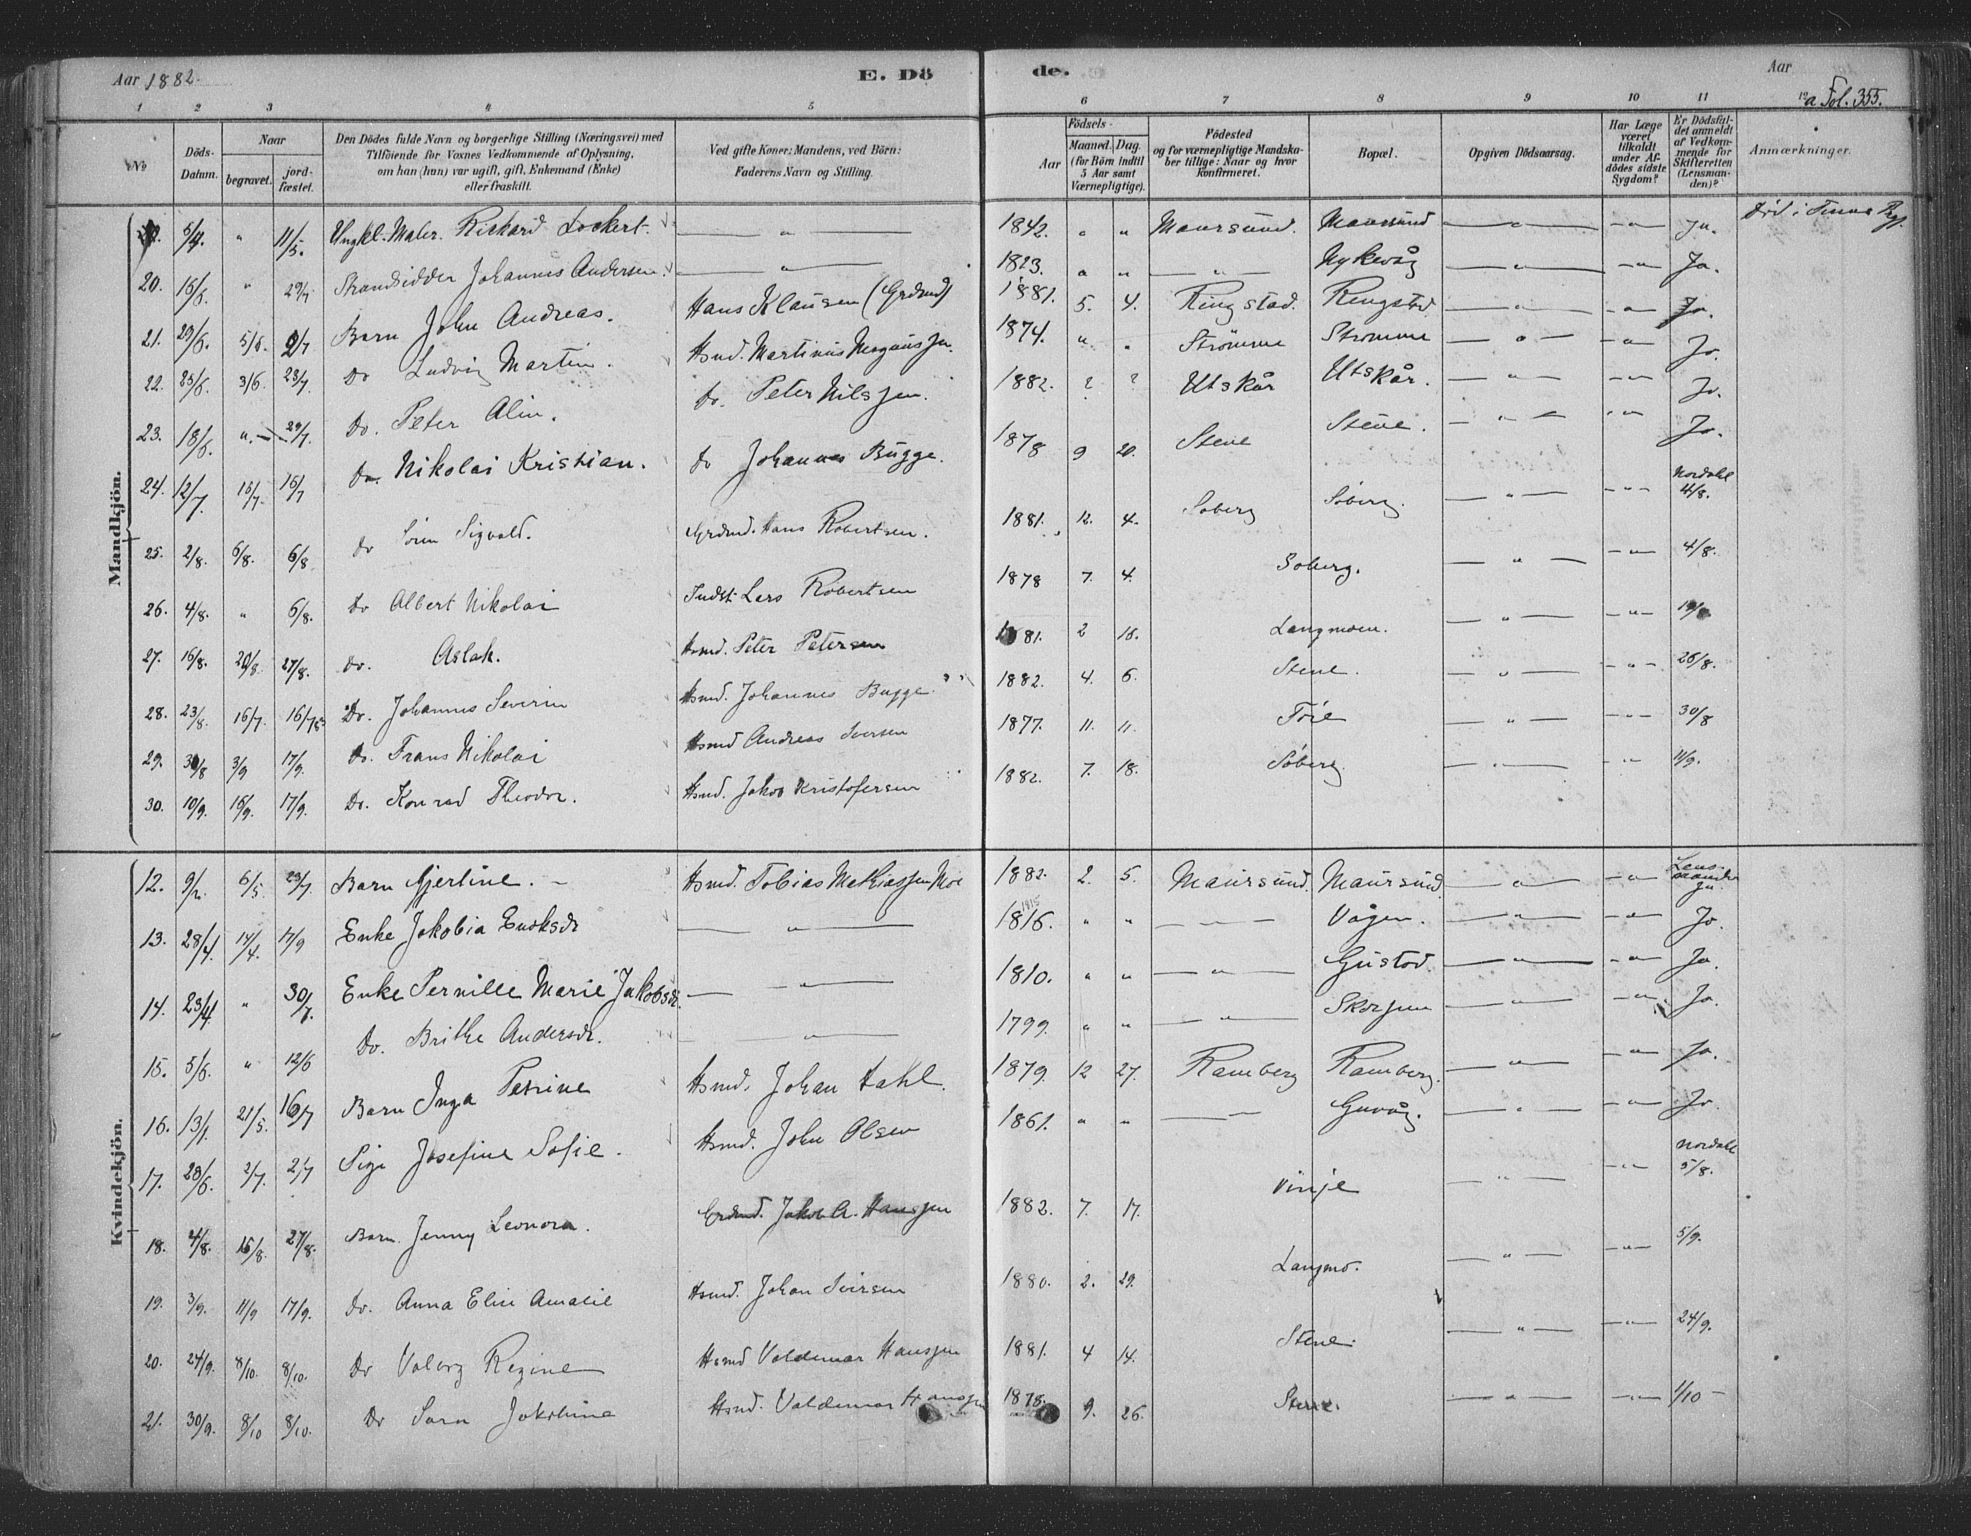 Aar 1882. E. Dö de. Aar
1 2 3 4 5 6 7 8 9 10 11 12
a Fol. 355.
No
Döds-Datum.
Naar
begravet.
jord-fæstet.
Den Dödes fulde Navn og borgerlige Stilling (Næringsvei) med
Tilföiende for Voxnes Vedkommende af Oplysning,
om han (hun) var ugift, gift, Enkemand (Enke)
eller fraskilt.
Ved gifte Koner: Mandens, ved Börn:
Faderens Navn og Stilling.
Födsels-
Aar
Maaned. Dag.
(for Börn indtil
5 Aar samt
Værnepligtige).
Födested
og for værnepligtige Mandska-
ber tillige: Naar og hvor
konfirmeret.
Bopæl.
Opgiven Dödsaarsag.
Har Læge
været
tilkaldt
under Af-
dödes sidste
Sygdom?
Er Dödsfal-
det anmeldt
af Vedkom-
mende for
Skifteretten
(Lensman-
den)?
Anmærkninger.
Mandkjön.
5/4. " 11/5. Ungkl. Maler. Rickard Lockert. — " — 1842. " " Maursund. Maursund — " — — " — Ja. Död i
20. 16/5. " 29/7 Strandsidder Johannes Andersen. — " — 1823. " " — " — Nykvåg — " — — " — Ja.
21. 29/5. 5/6. 9/7 Barn John Andreas. Hans Klausen (Grdmd) 1881. 5. 4. Ringstad. Ringstad. — " — — " — Ja.
22. 25/5. 3/6. 23/7. Do Ludvig Martin. Hsmd. Martinus Mognusjen. 1874. " " Strömme Strømme — " — — " — Jo.
23. 18/6. " — 29/7. Do. Peter Alin. Do. Peter Nilsjen. 1882. ? ? Utskår Utskår. — " — — " — Jo.
24. 12/7. 15/7. 16/7 Do. Nikolai Kristian. Do Johannes Bugge. 1878 9 20. Stene Stene. — " — " — " Jo.
25. 2/8. 6/8. 6/8 Do Sören Sigvald. Grdmd. Hans Robertsen. 1881. 12. 4. Soberg Söberg. — " — — " — Nordahl 4/8.
26. 4/8. " 6/8. Do Albert Nikolai Indst. Lars Robertsen 1878 7. 4. Soberg. — " — — " — 4/8.
27. 16/8. 20/8. 27/8. Do. Aslak. Hsmd. Peter Petersen 1881. 2 16. Langmoen. — " — — " —
28. 23/8. 16/7. 16/7 83 Do. Johannes Severin Hsmd. Johannes Bugge. 1882. 4. 6. Stene. — " — — " — 26/8.
29. 30/8 3/9 17/9. Do. Frans Nikolai Hsmd Andreas Iversen 1877. 11. 11. Töie — " — — " — 30/8
30. 10/9. 16/9. 17/9. Do. Konrad Theodor. Hsmd. Jakob Kristofersen 1882. 7. 18. Söberg — " — — " — 11/9.
Kvindekjön.
12. 9/2. 6/5 23/7 Barn Gjertine. — Hsmd. Tobias Mathiasjen Moe 1882. 2. 5. Maursund. Maursund — " — — " — Lensmanden Ja.
13. 28/4. 14/4. 17/9 Enke Jakobia Enoksdr — " — 1815 1816. " " — " — Vågen. — " — — " — Jo.
14. 23/4. " 30/7. Enke Pernille Marie Jakobsdr. — " — 1810. " " — " — Gustad. — " — — " — Ja.
15. 5/6. " 12/6 Do. Brithe Andersdr. — " — 1799. " " — " — Skorjen — " — — " — Ja.
16. 13/5. 21/5. 16/7 Barn Inga Petrine Hsmd. Johan Hahl. 1879. 12 27. Ramberg Ramberg. — " — — " — Ja.
17. 28/6. 2/7. 2/7 Pige Josefine Sofie. Hsmd. John Olsen 1861. " " — " — Guvåg. — " — — " — Jo.
18. 4/8. 15/8. 27/8. Barn. Jenny Leonora. Grdmd. Jakob A. Hansjen 1882. 7. 17. Vinje — " — — " — Nordahl 5/8.
19. 3/9. 11/9 17/9. Do. Anna Elise Amalie Hsmd. Johan Iversen 1880. 2. 29. Langmo. — " — — " — 5/9.
20. 24/9. 8/10. 8/10. Do Valborg Regine Hsmd Valdemar Hansjen 1881. 4 14. Stene. — " — — " — 24/9.
21. 30/9. 8/10 8/10. Do Sara Jakobine Hsmd. Valdemar Hansjen 1878. 9. 26. Stene. — " — — " — 1/10 —